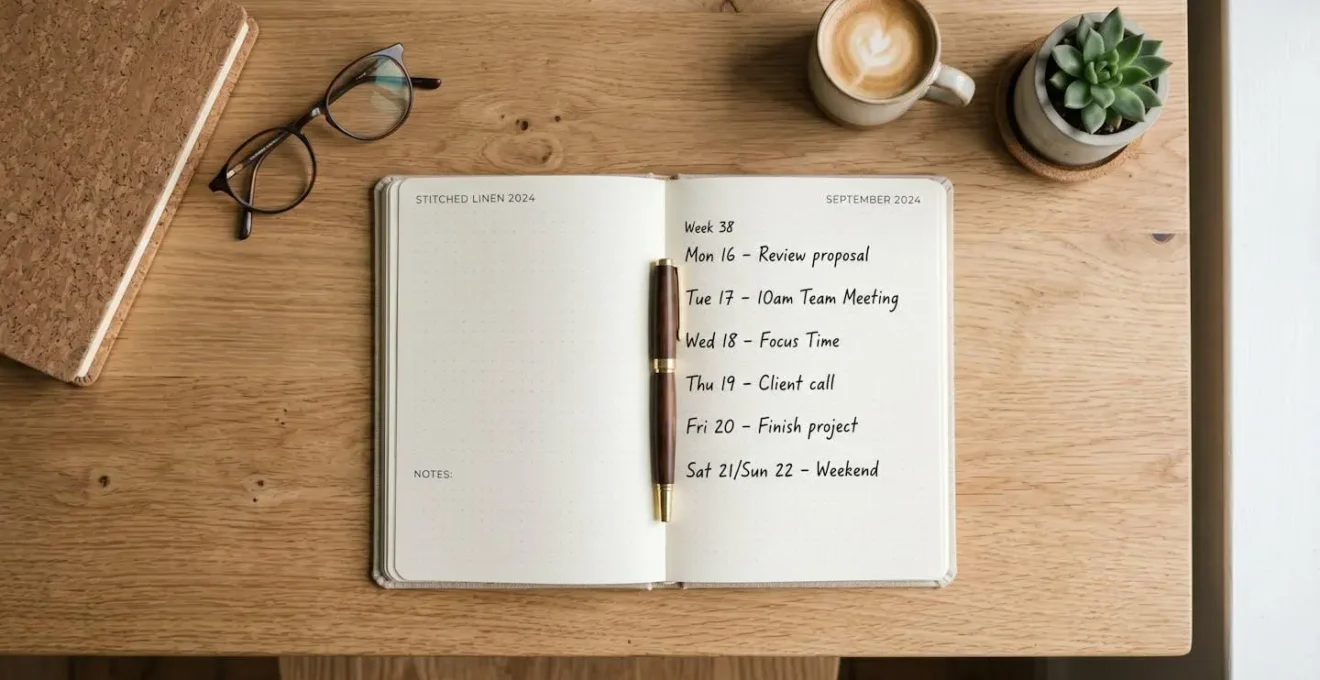 STITCHED LINEN 2024
NOTES:
SEPTEMBER 2024
Week 38
Mon 16 – Review proposal
Tue 17 – 10am Team Meeting
Wed 18 – Focus Time
Thu 19 – Client call
Fri 20 – Finish project
Sat 21/Sun 22 – Weekend